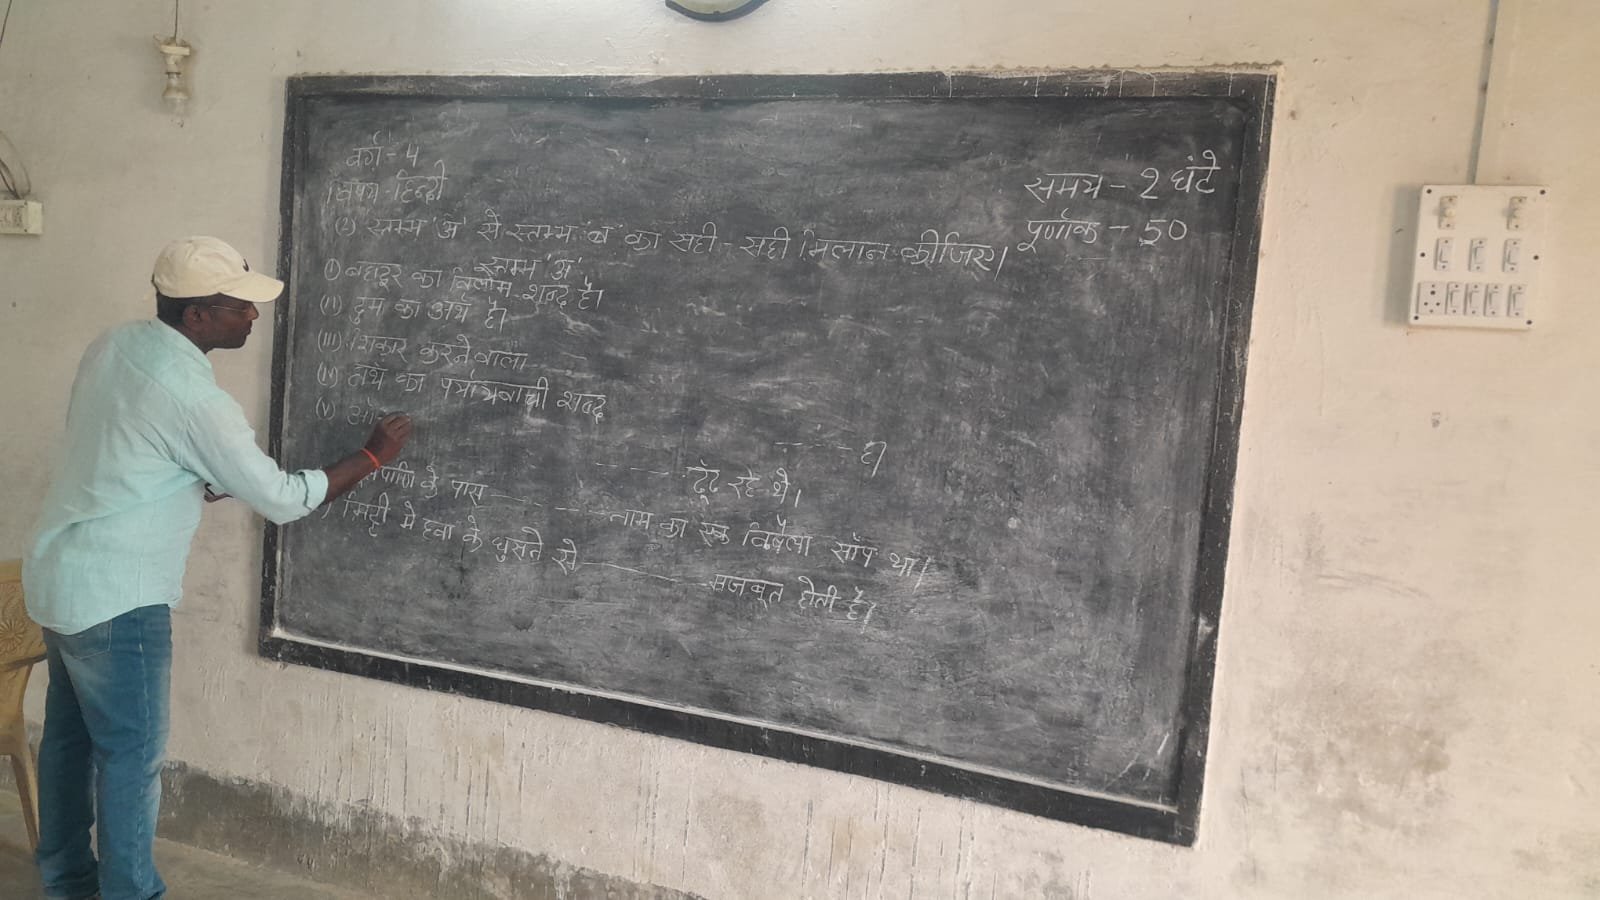 वर्ग - 4
विषय - हिन्दी
समय - 2 घंटे
पूर्णांक - 50
(2) स्तम्भ 'अ' से स्तम्भ 'ब' का सही - सही मिलान कीजिए।
स्तम्भ 'अ'
(i) बहादूर का विलोम शब्द है।
(ii) द्रुम का अर्थ है।
(iii) शिकार करने वाला
(iv) का पर्यायवाची शब्द
(v)
---- है।
---- ढूँढ रहे थे।
के पास ---- नाम का एक विषैला साँप था।
मिट्टी मे हवा के घुसने से ---- मजबूत होती है।